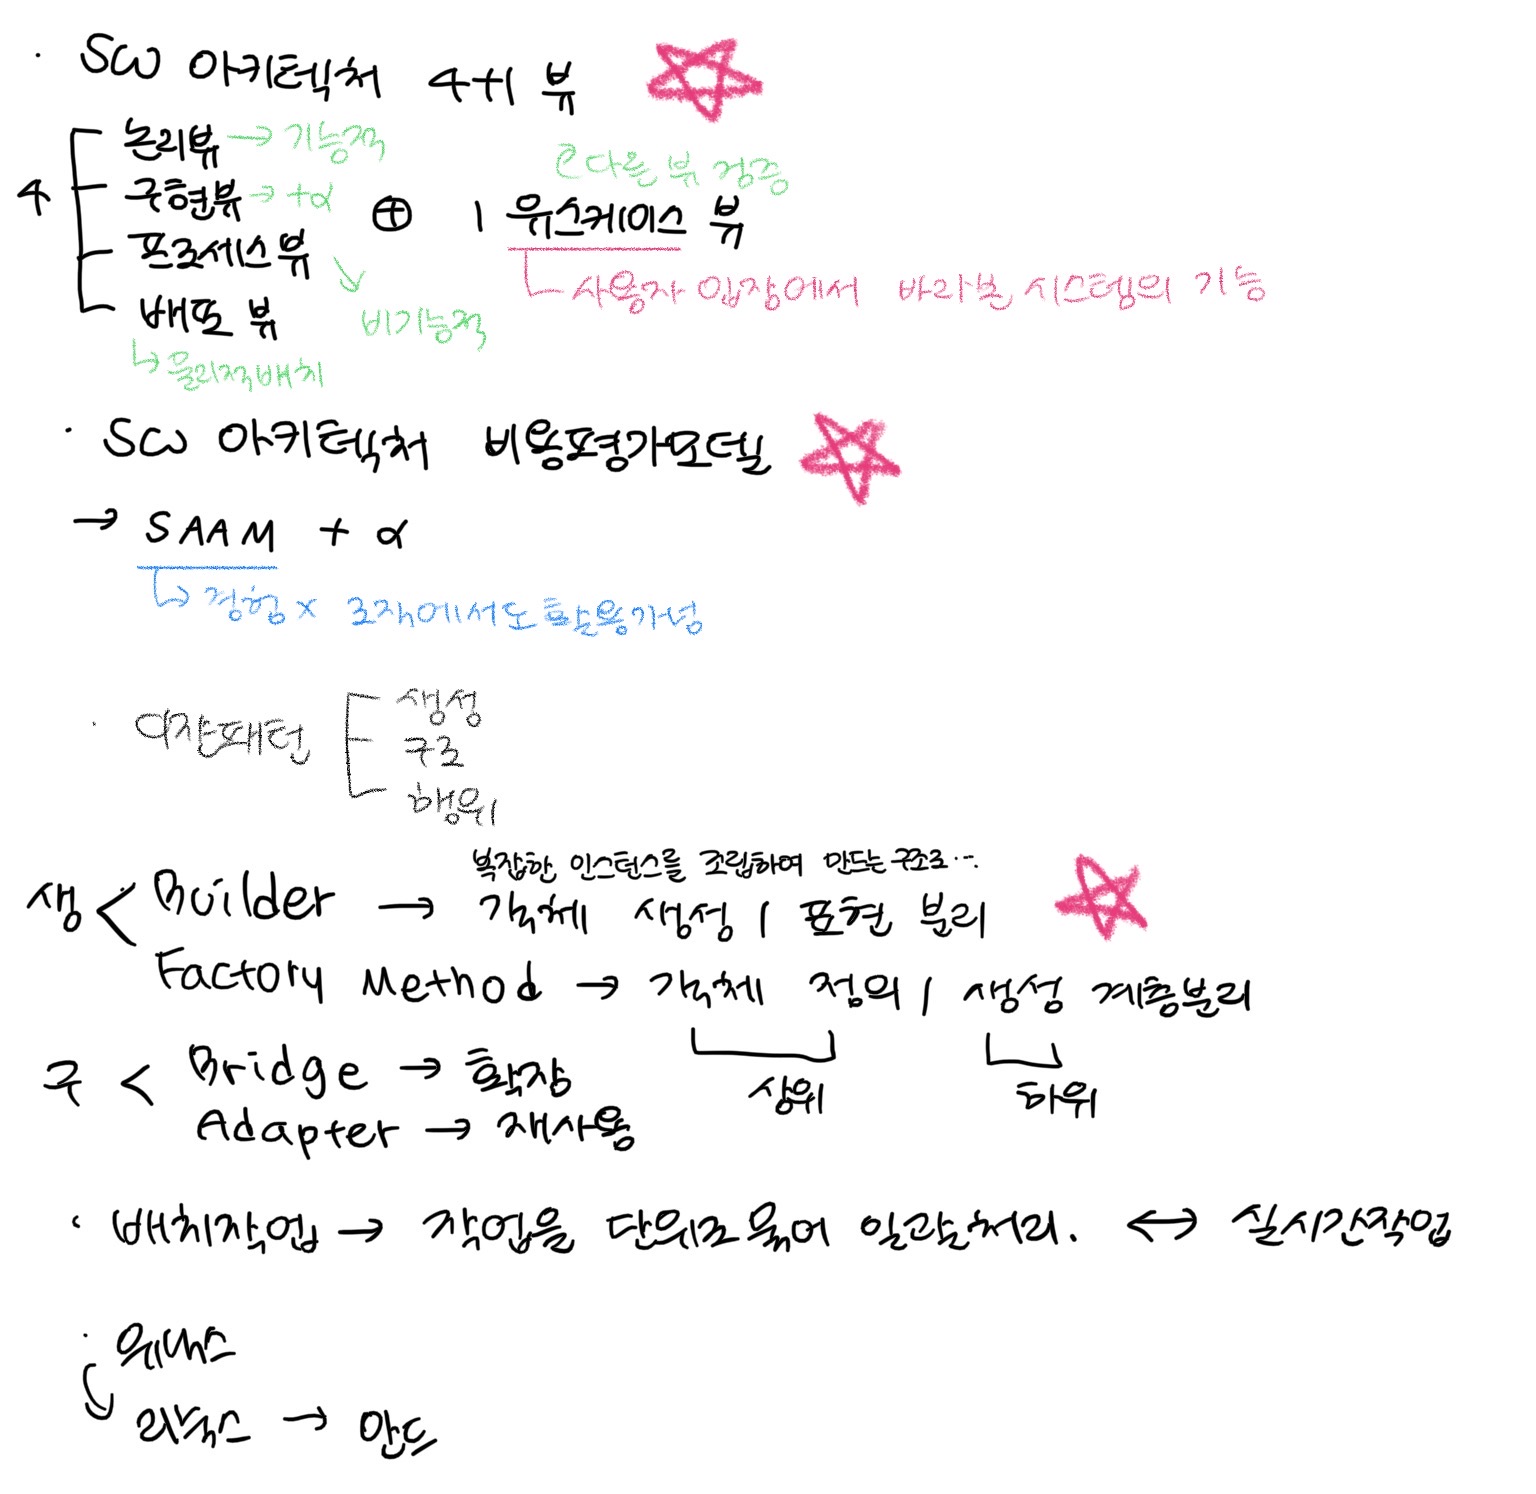 · SW 아키텍처 4+1 뷰
논리뷰 → 기능적
다른 뷰 검증
4 구현뷰 → +α ⊕ 1 유스케이스 뷰
프로세스뷰 ↘ 비기능적
사용자 입장에서 바라본 시스템의 기능
배포 뷰
↳ 물리적배치
· SW 아키텍처 비용평가모델
→ SAAM + α
↳ 경험 x 조직에서도 활용가넝
· 디쟌패턴
생성
구조
행위
복잡한 인스턴스를 조립하여 만드는 구조로...
생 < Builder → 객체 생성 / 표현 분리
Factory Method → 객체 정의 / 생성 계층분리
상위 하위
구 < Bridge → 확장
Adapter → 재사용
· 배치작업 → 작업을 단위로 묶어 일괄처리. ↔ 실시간작업
·
리눅스 → 안드